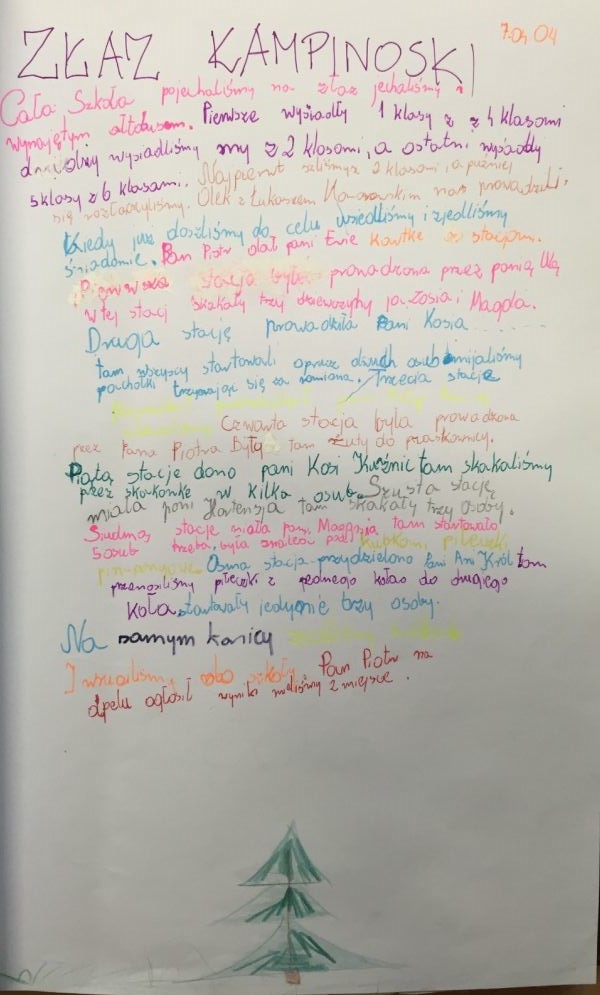 7.04 04
ZŁAZ KAMPINOSKI
Cała Szkoła pojechaliśmy na złaz jechaliśmy i
wynajętym ałtobusem. Pierwsze wysiadły 1 klasy z z 4 klasami
drudzy wysiedliśmy my z 2 klasami, a ostatni wysiadły
5 klasy z 6 klasami. Najpierwt szliśmy z 2 klasami, a puźniej
się rozłączyliśmy. Olek z Łukaszem nas prowadzili.
Kiedy już doszliśmy do celu usiedliśmy i zjedliśmy
śniadanie. Pan Piotr dał pani Ewie kartke ze stacjami.
Pierwsza stacja była prowadzona przez panią Ulą
W tej stacj skakały trzy dziewczyny ja, Zosia i Magda.
Druga stację prowadziła Pani Kasia
tam wszyscy startowali oprucz dwuch osub omijaliśmy
pachołki trzymając się za ramiona. Trzecia stacje
Czwarta stacja była prowadzona
przez Pana Piotra Były tam rzuty do piaskownicy.
Piątą stacje dano pani Kasi Kuźnic tam skakaliśmy
przez skakanke w kilka osub. Szusta stację
miała pani Hortensja tam skakały trzy osoby.
Siudmą stacje miała pani Magda tam startowało
5 osub trzeba było znaleść pod kubkami piłeczki
pin-pongowe. Osma stacja przydzielono Pani Ani Król tam
przenosiliśmy piłeczki z jednego koła do drugiego
koła startowały jedynie trzy osoby.
Na samym końcu
I wruciliśmy do szkoły. Pan Piotr na
apelu ogłosił wyniki mieliśmy 2 miejsce.